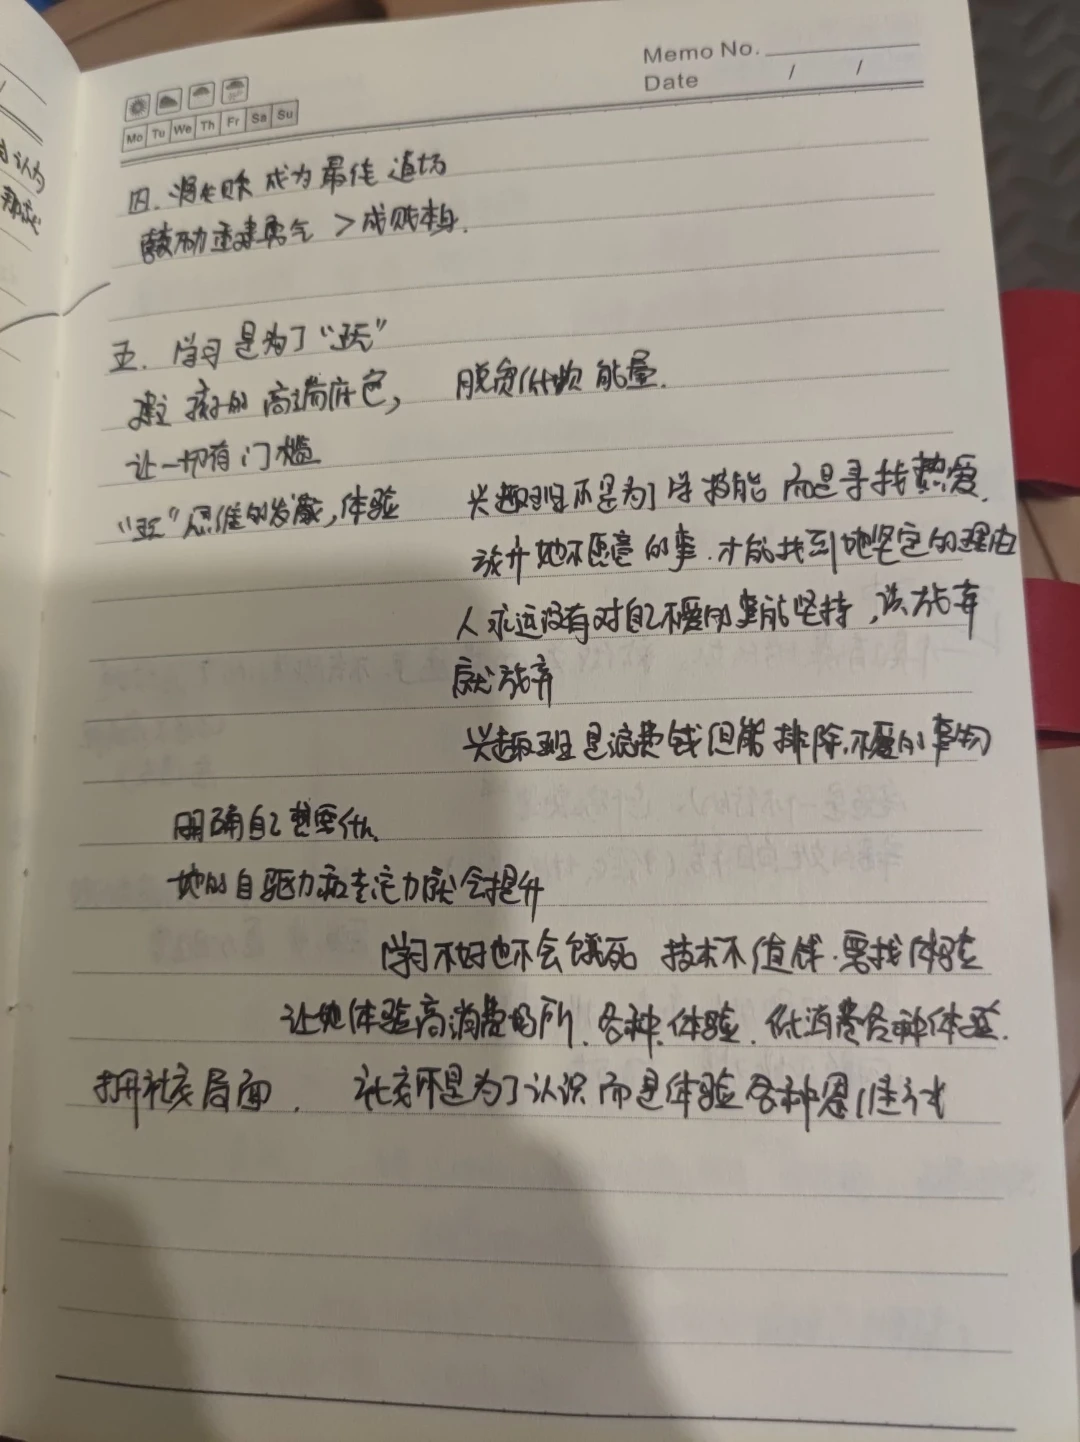 Memo No.
Date / /
Mo Tu We Th Fr Sa Su
四.将失败成为最佳道场
鼓励重建勇气 > 成败本身.
五. 学习是为了“玩”
建立孩子的高端底色, 脱贫 能量.
让一切有门槛
“玩”思维的发散,体验 兴趣班不是为了学技能 而是寻找热爱.
放开她不愿意的事.才能找到她坚定的理由
人永远没有对自己不爱的事能坚持,该放弃
就放弃
兴趣班是浪费钱但能排除不爱的事物
明确自己想要什么
她的自驱力和专注力就会提升
学习不好也不会饿死 技术不值钱.要找体验
让她体验高消费场所.各种体验. 低消费各种体验.
打开社交局面. 社交不是为了认识而是体验各种思维方式
认为